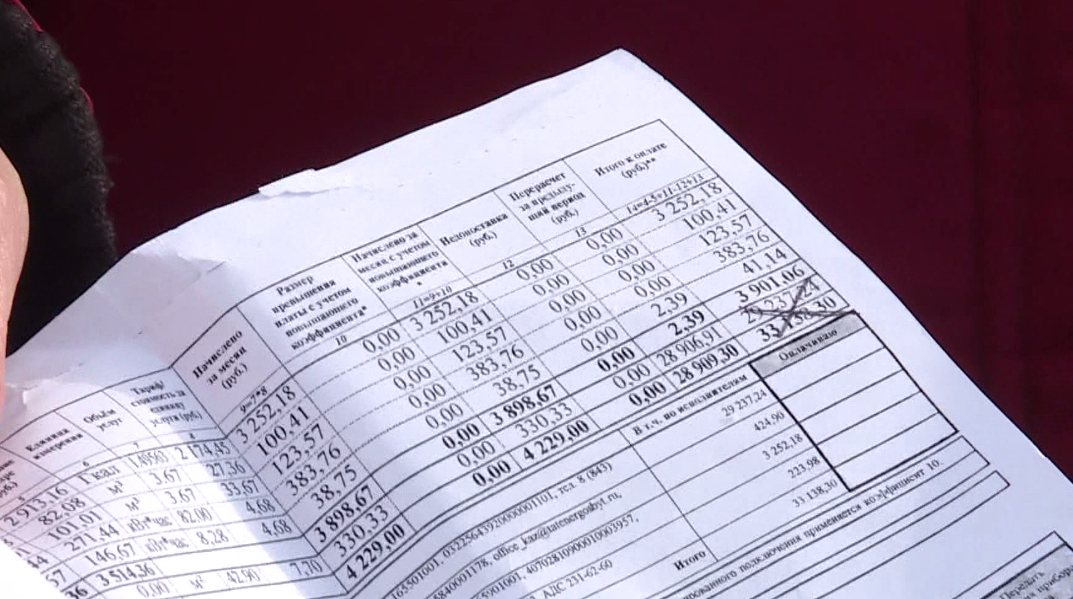 Единица измерения
Объём услуг
Тариф/стоимость за единицу услуги (руб.)
Начислено за месяц (руб.)
Размер превышения платы с учетом повышающего коэффициента*
Начислено за месяц с учетом повышающего коэффициента *
Недопоставка (руб.)
Перерасчет за предыдущий период (руб.)
Итого к оплате (руб.)**
6 7 8 9=7*8 10 11=9+10 12 13 14=4-5+11-12+13
2 913,16 Г кал 1,49563 2 174,45 3 252,18 0,00 3 252,18 0,00 0,00 3 252,18
82,08 м³ 3,67 27,36 100,41 0,00 100,41 0,00 0,00 100,41
101,01 м³ 3,67 33,67 123,57 0,00 123,57 0,00 0,00 123,57
271,44 кВт*час 82,00 4,68 383,76 0,00 383,76 0,00 0,00 383,76
146,67 кВт*час 8,28 4,68 38,75 0,00 38,75 0,00 2,39 41,14
3 514,36 3 898,67 0,00 3 898,67 0,00 2,39 3 901,06
0,00 м² 42,90 7,70 330,33 0,00 330,33 0,00 28 906,91
4 229,00 0,00 4 229,00 0,00 28 909,30
Оплачиваю
В т.ч. по исполнителям
29 237,24
424,90
3 252,18
223,98
Итого 33 138,30
165501001, тел. 8 (843)
office_kaz@tatenergosbyt.ru,
40702810900010003957,
АДС 231-62-60
подключения применяется коэффициент 10.
Передать